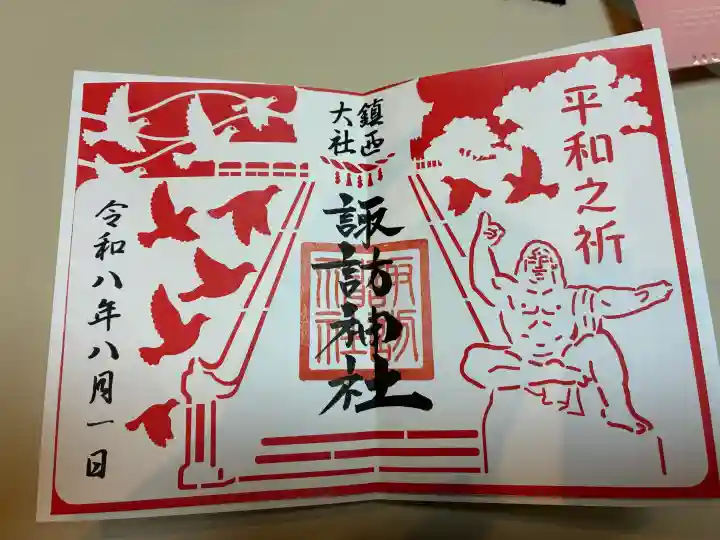 平和之祈
鎮西
大社
諏訪神社
令和八年八月一日